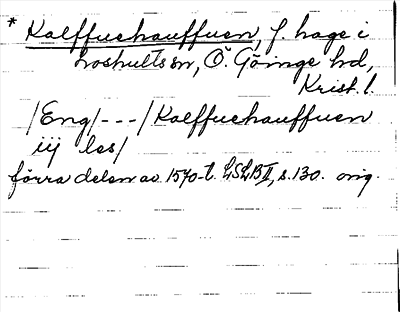 * Kalffuehauffuen, f. hage i
Loshults sn, Ö. Göinge hd,
Krist. l.
/Eng/---/Kalffuehauffuen
iij les/
förra delen av 1570-t. LSLB II, s. 130. orig.